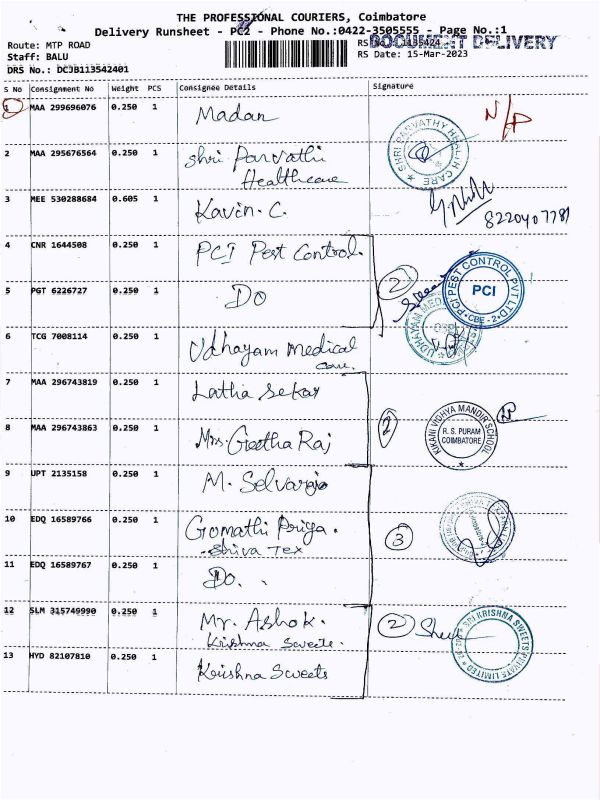 THE PROFESSIONAL COURIERS, Coimbatore
Delivery Runsheet - PC2 - Phone No.:0422-3505555 - Page No.:1
DOCUMENT DELIVERY
Route: MTP ROAD
Staff: BALU
RS Date: 15-Mar-2023
DRS No.: DCJB113542401
S No Consignment No Weight PCS Consignee Details Signature
1 MAA 299696076 0.250 1 Madan N/P
2 MAA 295676564 0.250 1 Shri Parvathi
Healthcare
SHRI PARVATHY HEALTH CARE
3 MEE 530288684 0.605 1 Kavin. C.
8220407781
4 CNR 1644508 0.250 1 PCI Pest Control.
2
PCI PEST CONTROL PVT LTD
PCI
CBE - 2
5 PGT 6226727 0.250 1 Do
6 TCG 7008114 0.250 1 Udhayam medical
care.
7 MAA 296743819 0.250 1 Latha Sekar
8 MAA 296743863 0.250 1 Mrs. Geetha Raj
2
KIKANI VIDHYA MANDIR SCHOOL
R. S. PURAM
COIMBATORE
9 UPT 2135158 0.250 1 M. Selvaraj
10 EDQ 16589766 0.250 1 Gomathi Priya.
Shiva Tex
3
11 EDQ 16589767 0.250 1 Do.
12 SLM 315749990 0.250 1 Mr. Ashok.
Krishna Sweets.
2
SRI KRISHNA SWEETS PRIVATE LIMITED
13 HYD 82107810 0.250 1 Krishna Sweets